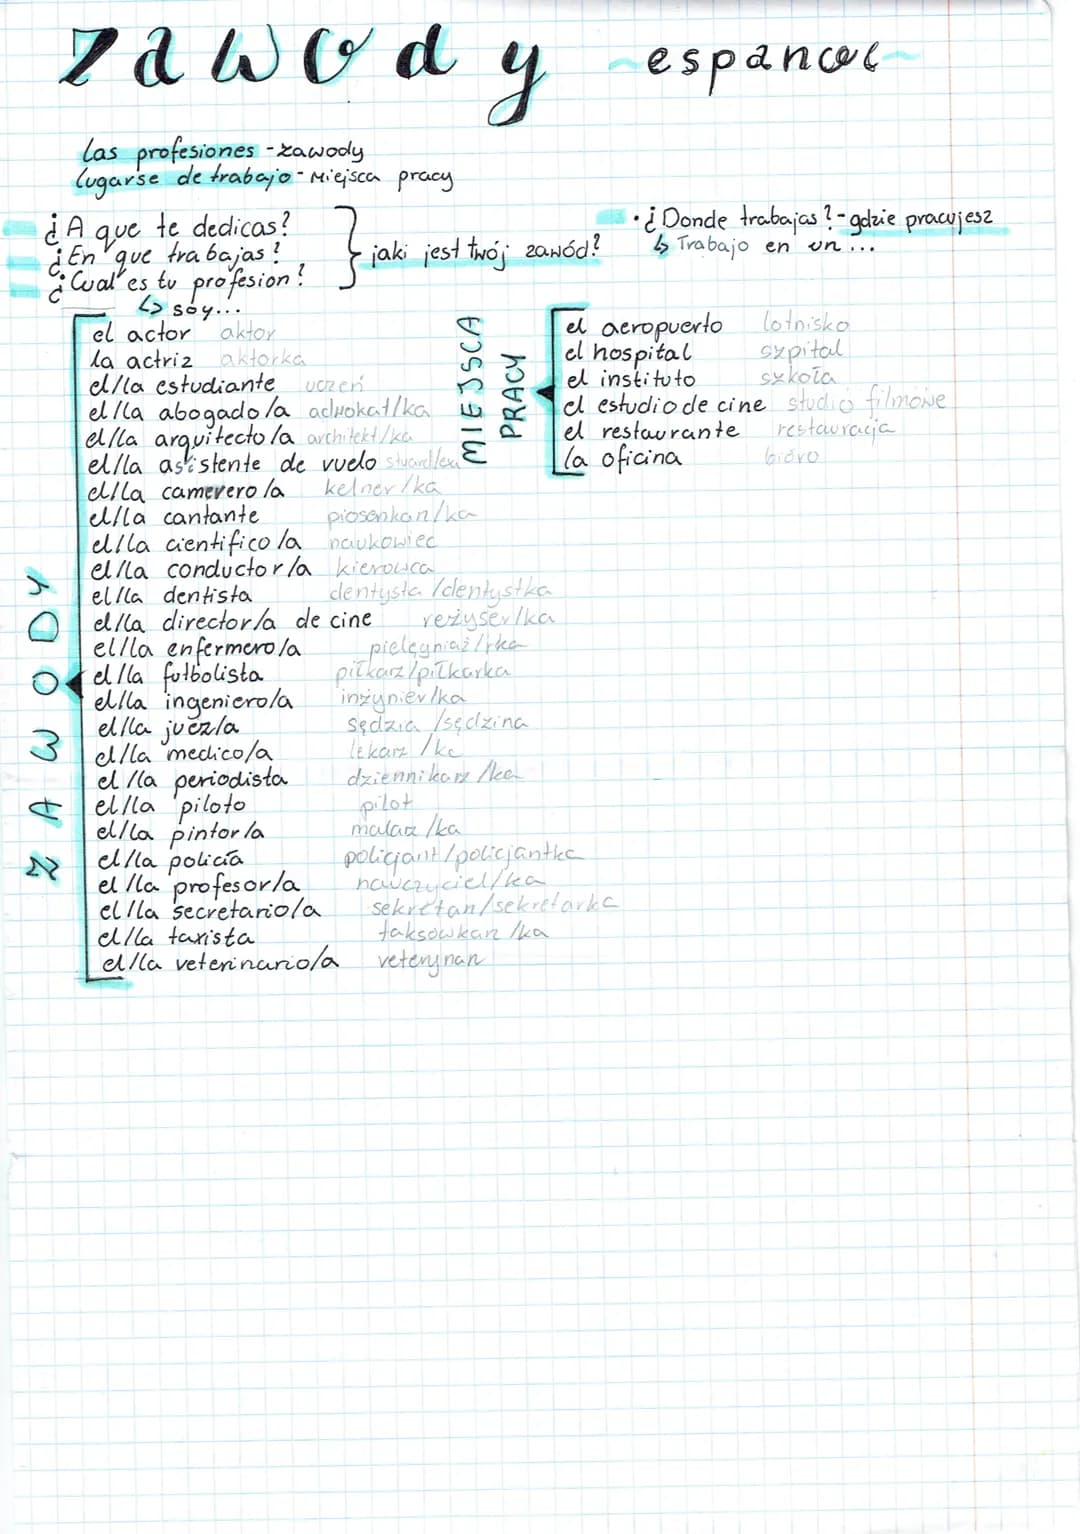 zawody ~espanol~
las profesiones - zawody
lugarse de trabajo - Miejsca pracy
¿A que te dedicas?
¿En que trabajas?
¿Cual es tu profesion?
jaki jest twój zawód?
↳ soy...
• ¿Donde trabajas? - gdzie pracujesz
↳ Trabajo en un ...
ZAWODY
el actor aktor
la actriz aktorka
el/la estudiante uczeń
el/la abogado/a adwokat/ka
el/la arquitecto/a architekt/ka
el/la asistente de vuelo
el/la camerero/a kelner/ka
el/la cantante piosenkarz/ka
el/la cientifico/a naukowiec
el/la conductor/a kierowca
el/la dentista dentysta/dentystka
el/la director/a de cine reżyser/ka
el/la enfermero/a pielęgniaż/rka
el/la futbolista piłkarz/piłkarka
el/la ingeniero/a inżynier/ka
el/la juez/a sędzia/sędzina
el/la medico/a lekarz/ka
el/la periodista dziennikarz/ka
el/la piloto pilot
el/la pintor/a malarz/ka
el/la policía policjant/policjantka
el/la profesor/a nauczyciel/ka
el/la secretario/a sekretarz/sekretarka
el/la taxista taksówkarz/ka
el/la veterinario/a weterynarz
MIEJSCA
PRACY
el aeropuerto lotnisko
el hospital szpital
el instituto szkoła
el estudio de cine studio filmowe
el restaurante restauracja
la oficina bióro